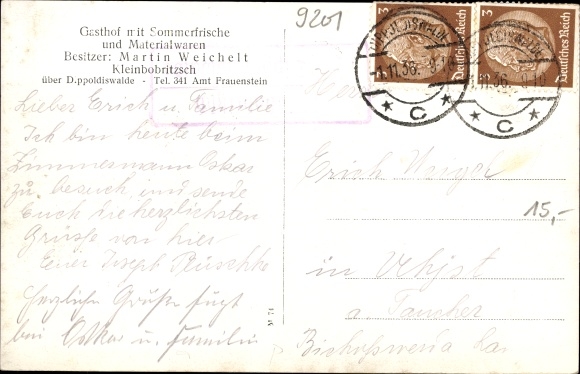 Gasthof mit Sommerfrische
und Materialwaren
Besitzer: Martin Weichelt
Kleinbobritzsch
über D.ppoldiswalde - Tel. 341 Amt Frauenstein
Lieber Erich u. Familie
Ich bin heute beim
Zimmermann Oskar
zu besuch, und sende
Euch die herzlichsten
Grüsse von hier
Euer Joseph
Herzliche Grüße fügt
bei Oskar u. Familie
M 71
9201
3 Deutsches Reich
3 Deutsches Reich
DIPPOLDISWALDE
-1.11.36. 9-10
* C *
DIPPOLDISWALDE
-1.11.36. 9-10
* C *
Erich
15,-
in Uhyst
a. Taucher
Bischofswerda